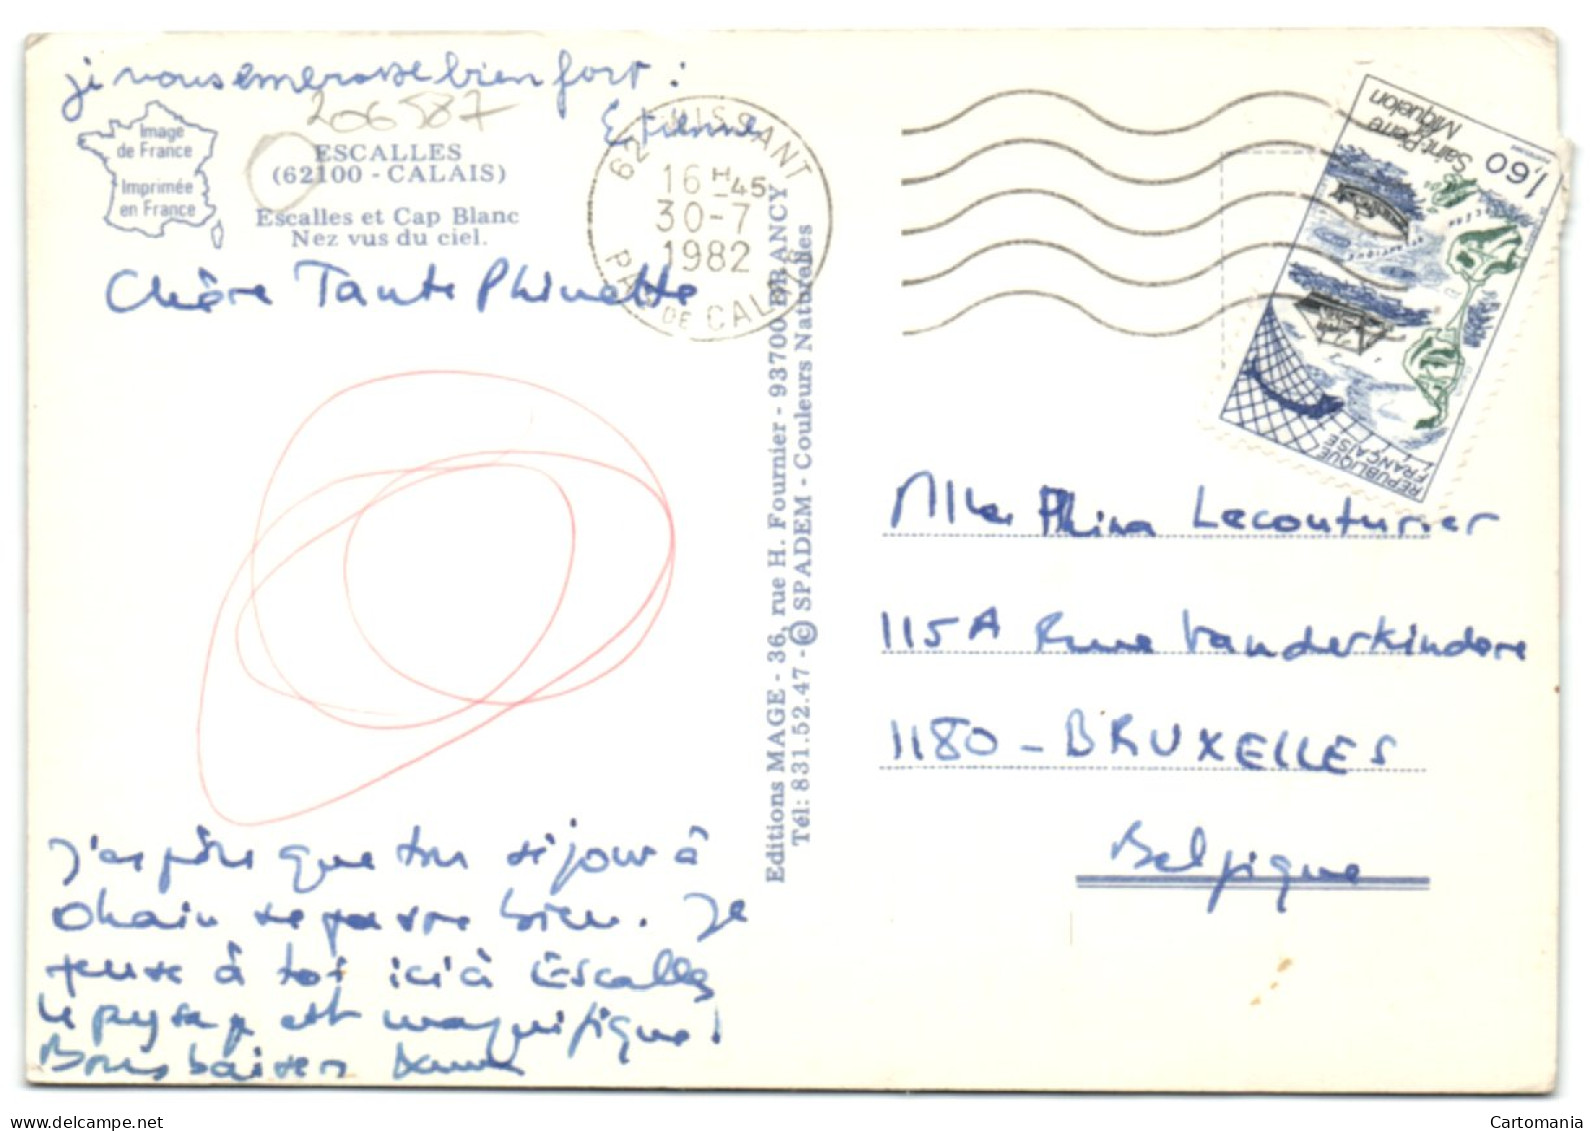 je vous embrasse bien fort :
Etienne
206587
Image
de France
Imprimée
en France
ESCALLES
(62100 - CALAIS)
Escalles et Cap Blanc
Nez vus du ciel.
62 WISSANT
16 H 45
30-7
1982
PAS DE CALAIS
Chère Tante Phinette
J'espère que ton séjour à
Ohain se passe bien. Je
pense à toi ici à Escalles
le paysage est magnifique!
Bons baisers
Editions MAGE - 36, rue H. Fournier - 93700 DRANCY
Tél: 831.52.47 - © SPADEM - Couleurs Naturelles
1,60
Saint-Pierre
et
Miquelon
REPUBLIQUE
FRANÇAISE
Phina Lecouturier
115A Rue Vanderkindere
1180 - BRUXELLES
Belgique
Cartomania